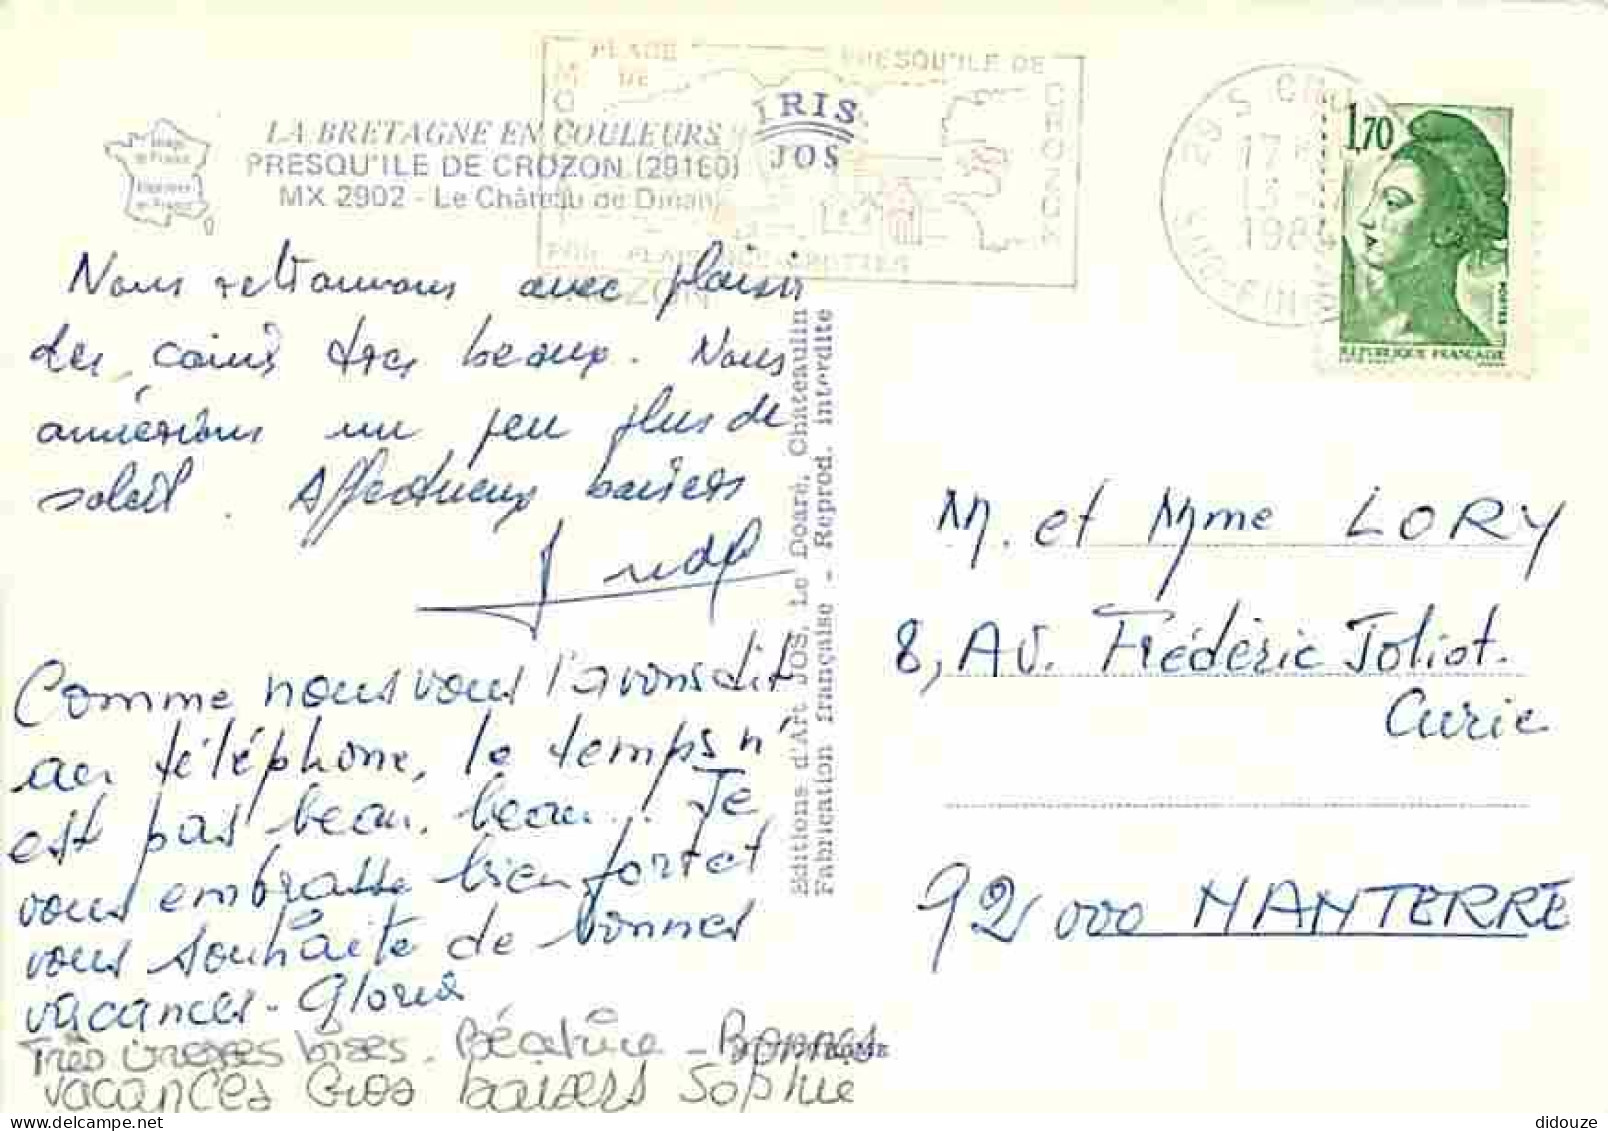 PLAGE
DE
PRESQU'ILE DE
CROZON
IRIS
JOS
LA BRETAGNE EN COULEURS
PRESQU'ILE DE CROZON (29160)
MX 2902 - Le Château de Dinan
29 S CRO
17 H
13
1984
SUD-FINIS
1,70
POSTES
REPUBLIQUE FRANÇAISE
Nous retrouvons avec plaisir
des coins très beaux. Nous
aimerions un peu plus de
soleil. Affectueux baisers
Comme nous vous l'avons dit
au téléphone, le temps n'
est pas beau, beau... Je
vous embrasse bien fort et
vous souhaite de bonnes
vacances. Gloria
Très grosses bises. Béatrice - Bonnes
vacances Gros baisers Sophie
Editions d'Art JOS, Le Doaré, Chateaulin
Fabrication française - Reprod. interdite
M. et Mme LORY
8, Av. Frédéric Joliot.
Curie
92000 NANTERRE
didouze